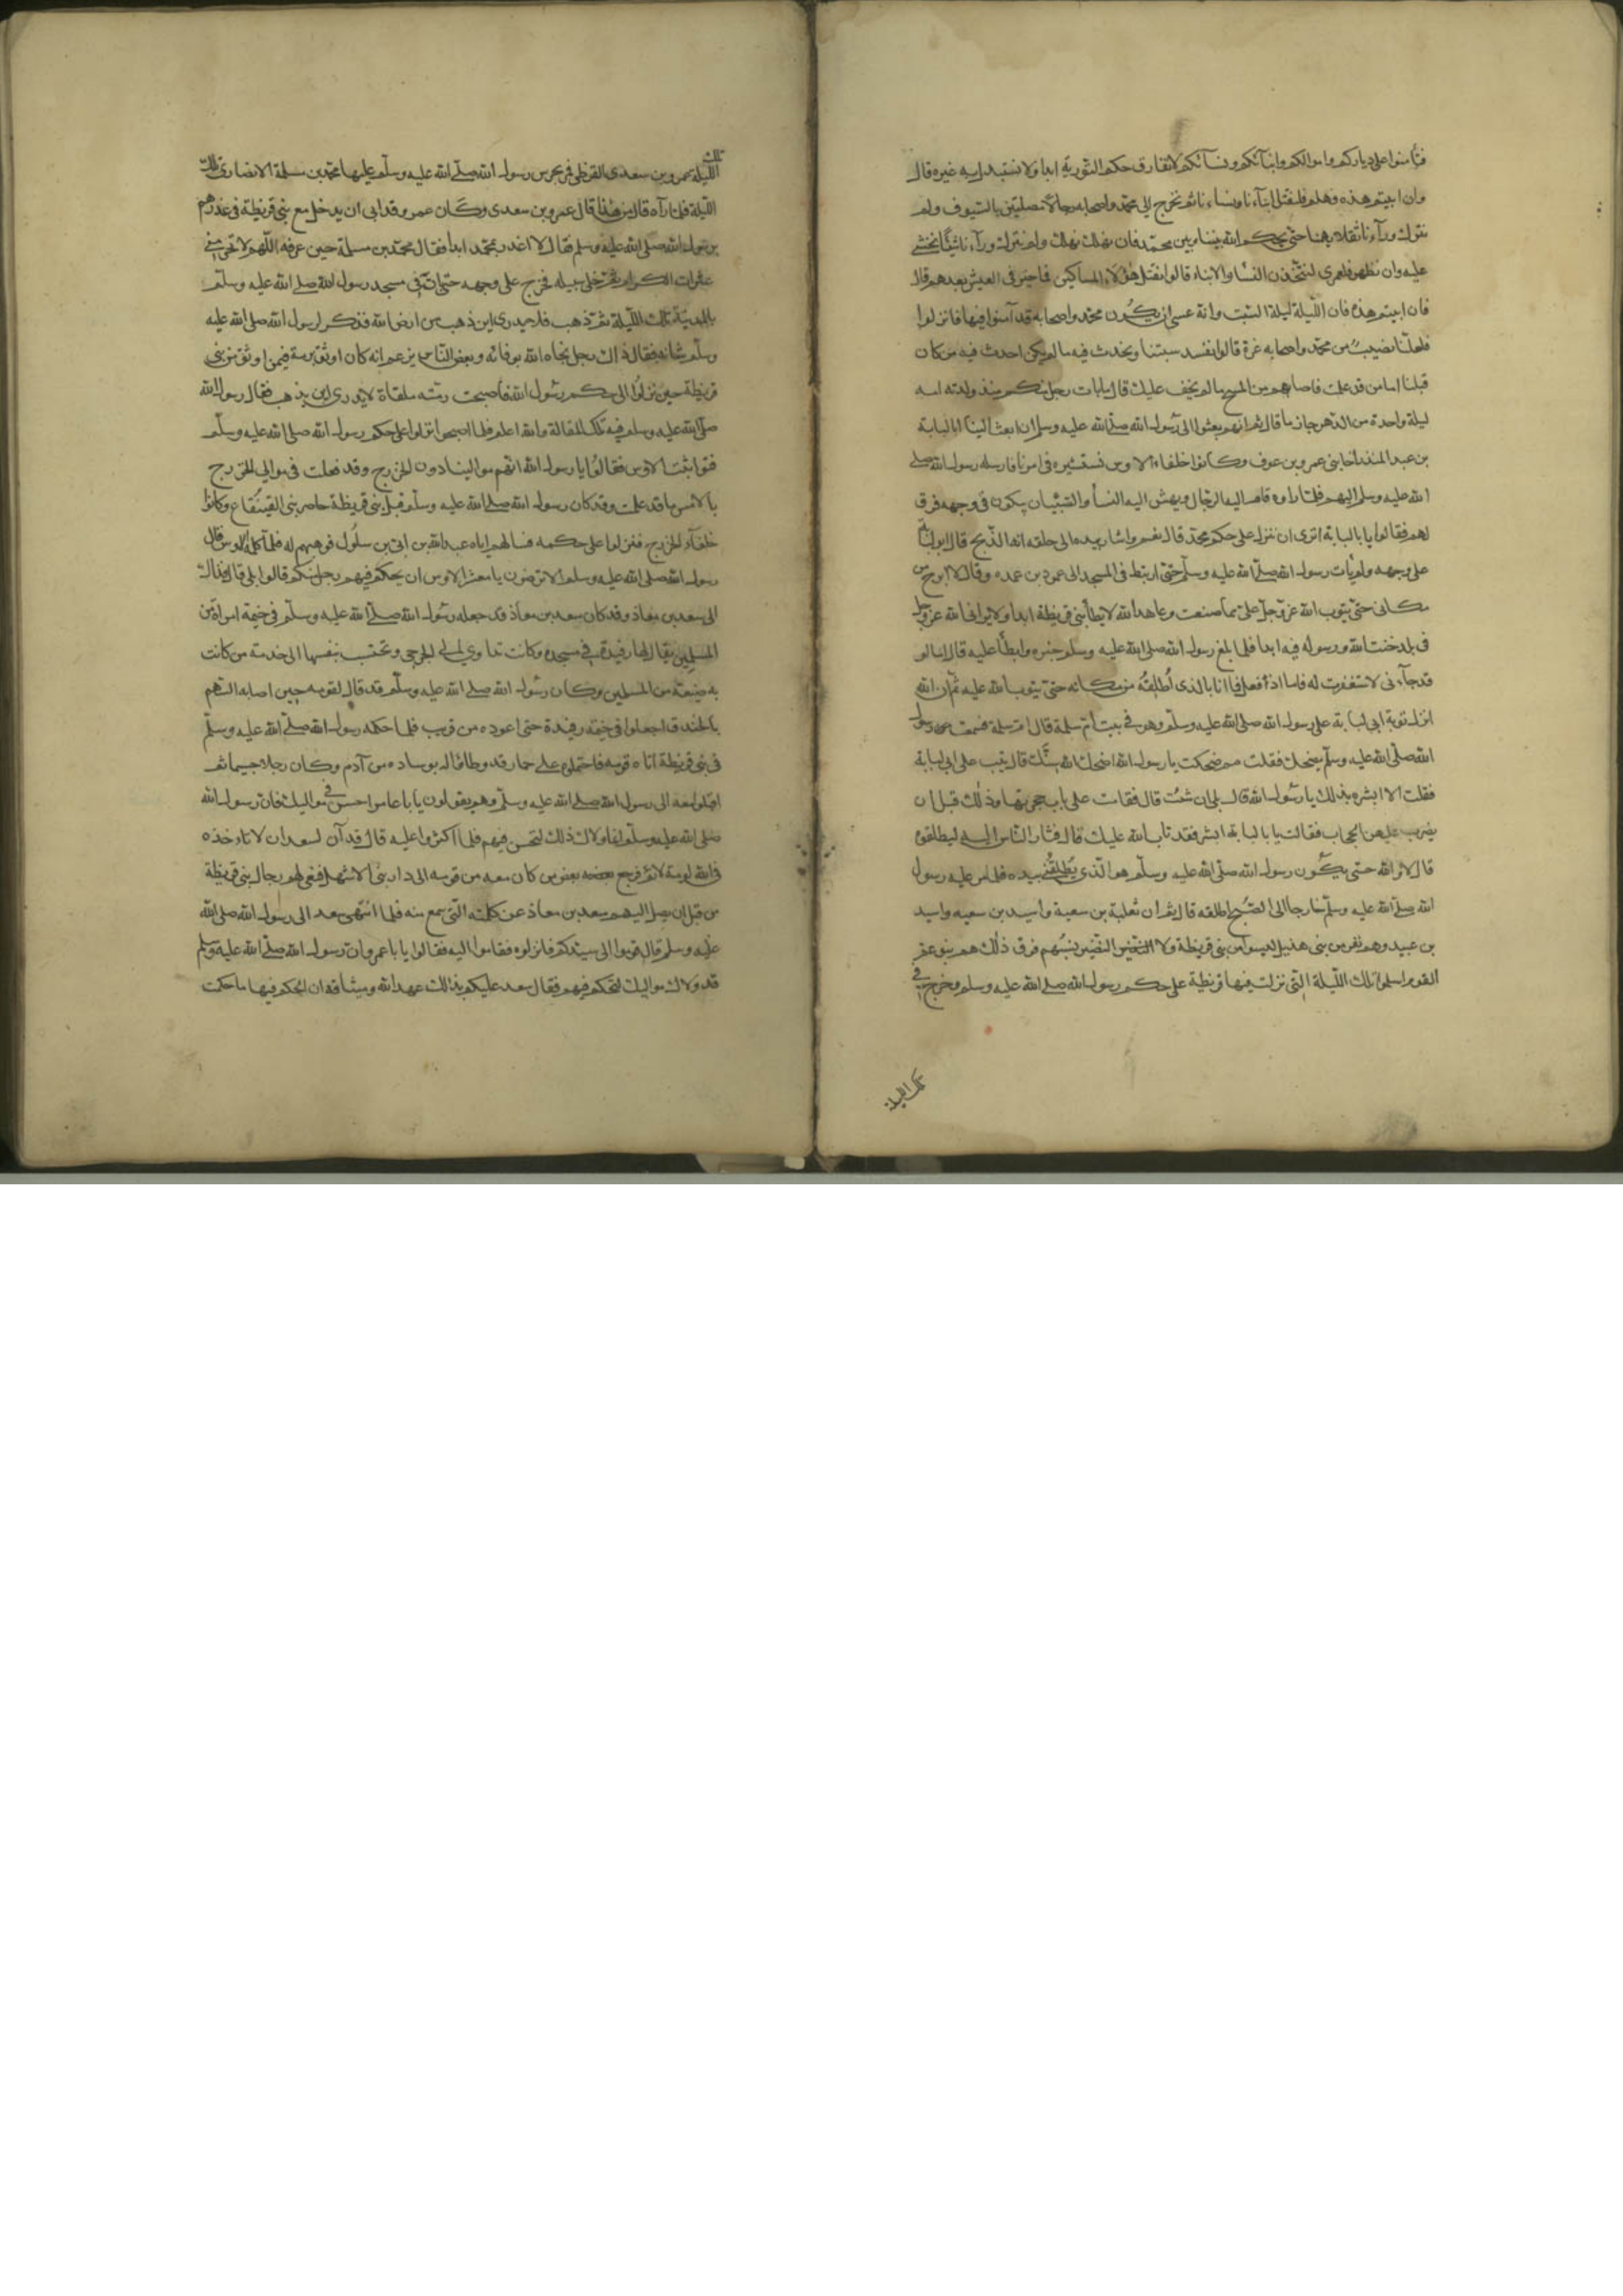 فتأمنوا على دياركم واموالكم وابنآئكم ونسآئكم لانفارق حكم التورية ابدا ولا نستبدل به غيره قال
وان ابيتم هذه فهلم فلنقتل ابنآءنا ونساءنا ثم نخرج الى محمد واصحابه رجالا مصلتين بالسيوف ولم
نترك ورآءنا ثقلا يهمنا حتى يحكم الله بيننا وبين محمد فان نهلك نهلك ولم نترك ورآءنا شيئا نخشى
عليه وان نظهر فلعمرى لنتخذن النسا والابناء قالوا نقتل هؤلاء المساكين فما خير فى العيش بعدهم قال
فان ابيتم هذه فان الليلة ليلة السبت وانه عسى ان يكون محمد واصحابه قد آمنوا فيها فانزلوا
فلعلنا نصيب من محمد واصحابه غرة قالوا نفسد سبتنا ونحدث فيه ما لم يكن احدث فيه من كان
قبلنا اما من قد علمت فاصابهم من المسخ ما لم يخف عليك قال ما بات رجل منكم منذ ولدته امه
ليلة واحدة من الدهر حازما قال ثم انهم بعثوا الى رسول الله صلى الله عليه وسلم ان ابعث الينا ابا لبابة
بن عبد المنذر اخا بنى عمرو بن عوف وكانوا حلفاء الاوس نستشيره فى امرنا فارسله رسول الله صلى
الله عليه وسلم اليهم فلما راوه قام اليه الرجال وبهش اليه النسا والصبيان يبكون فى وجهه فرق
لهم فقالوا يا با لبابة اترى ان ننزل على حكم محمد قال نعم واشار بيده الى حلقه انه الذبح قال ابو لبابة
على وجهه ولم يأت رسول الله صلى الله عليه وسلم حتى ارتبط فى المسجد الى عمود من عمده وقال لا ابرح من
مكانى حتى يتوب الله عز وجل على مما صنعت وعاهد الله لا يطأ بنى قريظة ابدا ولا يرانى الله عز وجل
فى بلد خنت الله ورسوله فيه ابدا فلما بلغ رسول الله صلى الله عليه وسلم خبره وابطأ عليه قال اما لو
قد جآءنى لاستغفرت له فاما اذ فعل فما انا بالذى اطلقه من مكانه حتى يتوب الله عليه ثم ان الله
انزل توبة ابى لبابة على رسول الله صلى الله عليه وسلم وهو فى بيت ام سلمة قال ام سلمة فسمعت رسول
الله صلى الله عليه وسلم يضحك فقلت مم ضحكت يا رسول الله اضحك الله سنك قال تيب على ابى لبابة
فقلت الا ابشره بذلك يا رسول الله قال بلى ان شئت قال فقامت على باب حجرتها وذلك قبل ان
يضرب عليهن الحجاب فقالت يا با لبابة ابشر فقد تاب الله عليك قال فثار الناس اليه ليطلقوه
قال لا والله حتى يكون رسول الله صلى الله عليه وسلم هو الذى يطلقنى بيده فلما مر عليه رسول
الله صلى الله عليه وسلم خارجا الى الصبح اطلقه قال ثم ان ثعلبة بن سعية واسيد بن سعيه واسيد
بن عبيد وهم نفر من بنى هذيل ليسوا من بنى قريظة ولا النضير نسبهم فوق ذلك هم بنو عم
القوم اسلموا تلك الليلة التى نزلت فيها قريظة على حكم رسول الله صلى الله عليه وسلم وخرج فى
تلك الليلة
تلك
الليلة عمرو بن سعدى القرظى فمر بحرس رسول الله صلى الله عليه وسلم عليها محمد بن مسلمة الانصارى تلك
الليلة فلما رآه قال من هذا قال عمرو بن سعدى وكان عمرو قد ابى ان يدخل مع بنى قريظة فى غدرهم
برسول الله صلى الله عليه وسلم فقال لا اغدر بمحمد ابدا فقال محمد بن مسلمة حين عرفه اللهم لا تحرمنى
عثرات الكرام ثم خلى سبيله فخرج على وجهه حتى بات فى مسجد رسول الله صلى الله عليه وسلم
بالمدينة تلك الليلة ثم ذهب فلا يدرى اين ذهب من ارض الله فذكر لرسول الله صلى الله عليه
وسلم شانه فقال ذاك رجل نجاه الله بوفائه وبعض الناس يزعم انه كان اوثق برمة فيمن اوثق من بنى
قريظة حين نزلوا الى حكم رسول الله فاصبحت رمته ملقاة لا يدرى اين يذهب فقال رسول الله
صلى الله عليه وسلم فيه تلك المقالة والله اعلم فلما اصبحوا نزلوا على حكم رسول الله صلى الله عليه وسلم
فتواثبت الاوس فقالوا يا رسول الله انهم موالينا دون الخزرج وقد فعلت فى موالى الخزرج
بالامس ما قد علمت وقد كان رسول الله صلى الله عليه وسلم قبل بنى قريظة حاصر بنى القينقاع وكانوا
حلفآء الخزرج فنزلوا على حكمه فسالهم اياه عبد الله بن ابى بن سلول فوهبهم له فلما كلمه الاوس قال
رسول الله صلى الله عليه وسلم الا ترضون يا معشر الاوس ان يحكم فيهم رجل منكم قالوا بلى قال فذاك
الى سعد بن معاذ وقد كان سعد بن معاذ قد جعله رسول الله صلى الله عليه وسلم فى خيمة امراة من
المسلمين يقال لها رفيدة فى مسجده وكانت تداوى الجرحى وتحتسب بنفسها الى خدمة من كانت
به ضيعة من المسلمين وكان رسول الله صلى الله عليه وسلم قد قال لقومه حين اصابه السهم
بالخندق اجعلوه فى خيمة رفيدة حتى اعوده من قريب فلما حكمه رسول الله صلى الله عليه وسلم
فى بنى قريظة اتاه قومه فاحتملوه على حمار قد وطاؤا له بوسادة من آدم وكان رجلا جسيما ثم
اقبلوا معه الى رسول الله صلى الله عليه وسلم وهم يقولون يا با عامر احسن فى مواليك فان رسول الله
صلى الله عليه وسلم انما ولاك ذلك لتحسن فيهم فلما اكثروا عليه قال قد آن لسعد ان لا تاخذه
فى الله لومة لائم فرجع بعض من كان معه من قومه الى دار بنى الاشهل فنعى لهم رجال بنى قريظة
من قبل ان يصل اليهم سعد بن معاذ عن كلمته التى سمع منه فلما انتهى سعد الى رسول الله صلى الله
عليه وسلم قال قوموا الى سيدكم فانزلوه فقاموا اليه فقالوا يا با عمرو ان رسول الله صلى الله عليه وسلم
قد ولاك مواليك لتحكم فيهم فقال سعد عليكم بذالك عهد الله وميثاقه ان الحكم فيها ما حكمت